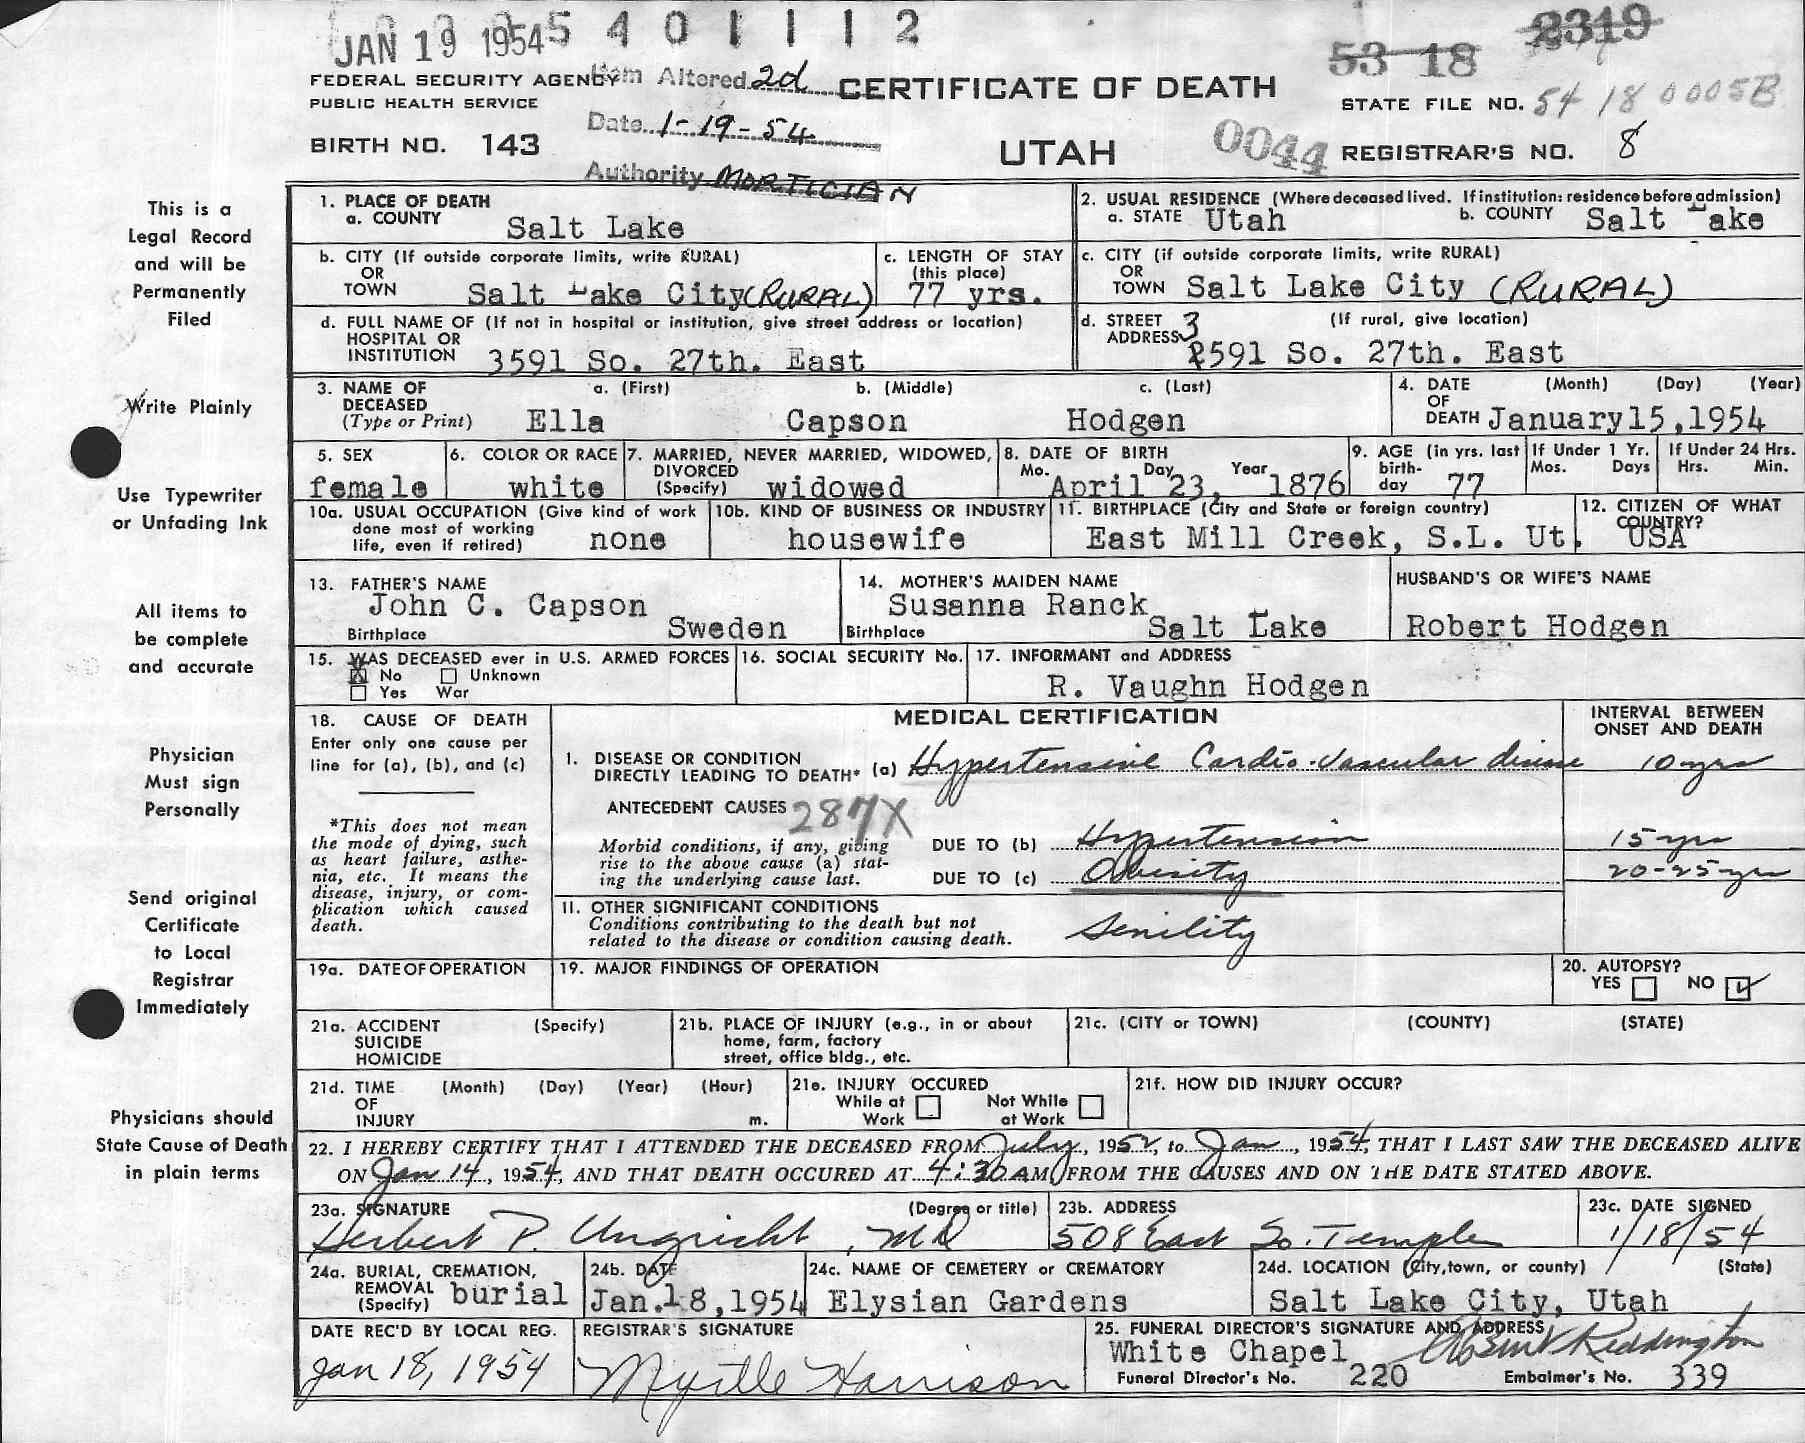 JAN 19 1954 5 4 0 1 1 1 2
53 18 2319
FEDERAL SECURITY AGENCY Item Altered 2d CERTIFICATE OF DEATH
PUBLIC HEALTH SERVICE STATE FILE NO. 54 18 0005B
Date 1-19-54
BIRTH NO. 143 UTAH 0044 REGISTRAR'S NO. 8
Authority MORTICIAN
This is a
Legal Record
and will be
Permanently
Filed
Write Plainly
Use Typewriter
or Unfading Ink
All items to
be complete
and accurate
Physician
Must sign
Personally
Send original
Certificate
to Local
Registrar
Immediately
Physicians should
State Cause of Death
in plain terms
1. PLACE OF DEATH
a. COUNTY Salt Lake
2. USUAL RESIDENCE (Where deceased lived. If institution: residence before admission)
a. STATE Utah b. COUNTY Salt Lake
b. CITY (If outside corporate limits, write RURAL)
OR
TOWN Salt Lake City (RURAL)
c. LENGTH OF STAY
(this place)
77 yrs.
c. CITY (if outside corporate limits, write RURAL)
OR
TOWN Salt Lake City (RURAL)
d. FULL NAME OF (If not in hospital or institution, give street address or location)
HOSPITAL OR
INSTITUTION 3591 So. 27th. East
d. STREET 3 (If rural, give location)
ADDRESS 2591 So. 27th. East
3. NAME OF a. (First) b. (Middle) c. (Last)
DECEASED
(Type or Print) Ella Capson Hodgen
4. DATE (Month) (Day) (Year)
OF
DEATH January 15, 1954
5. SEX
female
6. COLOR OR RACE
white
7. MARRIED, NEVER MARRIED, WIDOWED,
DIVORCED
(Specify) widowed
8. DATE OF BIRTH
Mo. Day Year
April 23, 1876
9. AGE (in yrs. last
birth-
day 77
If Under 1 Yr.
Mos. Days
If Under 24 Hrs.
Hrs. Min.
10a. USUAL OCCUPATION (Give kind of work
done most of working
life, even if retired) none
10b. KIND OF BUSINESS OR INDUSTRY
housewife
11. BIRTHPLACE (City and State or foreign country)
East Mill Creek, S.L. Ut.
12. CITIZEN OF WHAT
COUNTRY?
USA
13. FATHER'S NAME
John C. Capson
Birthplace Sweden
14. MOTHER'S MAIDEN NAME
Susanna Ranck
Birthplace Salt Lake
HUSBAND'S OR WIFE'S NAME
Robert Hodgen
15. WAS DECEASED ever in U.S. ARMED FORCES
X No Unknown
Yes War
16. SOCIAL SECURITY No.
17. INFORMANT and ADDRESS
R. Vaughn Hodgen
18. CAUSE OF DEATH
Enter only one cause per
line for (a), (b), and (c)
*This does not mean
the mode of dying, such
as heart failure, asthe-
nia, etc. It means the
disease, injury, or com-
plication which caused
death.
MEDICAL CERTIFICATION
INTERVAL BETWEEN
ONSET AND DEATH
I. DISEASE OR CONDITION
DIRECTLY LEADING TO DEATH* (a) Hypertensive Cardio-Vascular disease 10 yrs
ANTECEDENT CAUSES 287X
Morbid conditions, if any, giving
rise to the above cause (a) stat-
ing the underlying cause last.
DUE TO (b) Hypertension 15 yrs
DUE TO (c) Obesity 20-25 yrs
II. OTHER SIGNIFICANT CONDITIONS
Conditions contributing to the death but not
related to the disease or condition causing death.
Senility
19a. DATE OF OPERATION
19. MAJOR FINDINGS OF OPERATION
20. AUTOPSY?
YES NO
21a. ACCIDENT (Specify)
SUICIDE
HOMICIDE
21b. PLACE OF INJURY (e.g., in or about
home, farm, factory
street, office bldg., etc.
21c. (CITY or TOWN) (COUNTY) (STATE)
21d. TIME (Month) (Day) (Year) (Hour)
OF
INJURY m.
21e. INJURY OCCURED
While at Not While
Work at Work
21f. HOW DID INJURY OCCUR?
22. I HEREBY CERTIFY THAT I ATTENDED THE DECEASED FROM July, 1952, to Jan, 1954, THAT I LAST SAW THE DECEASED ALIVE
ON Jan 14, 1954, AND THAT DEATH OCCURED AT 4:30 AM, FROM THE CAUSES AND ON THE DATE STATED ABOVE.
23a. SIGNATURE (Degree or title)
Herbert P. Ungricht, MD
23b. ADDRESS
508 East So. Temple
23c. DATE SIGNED
1/18/54
24a. BURIAL, CREMATION,
REMOVAL
(Specify) burial
24b. DATE
Jan. 18, 1954
24c. NAME OF CEMETERY or CREMATORY
Elysian Gardens
24d. LOCATION (City, town, or county) (State)
Salt Lake City, Utah
DATE REC'D BY LOCAL REG.
Jan 18, 1954
REGISTRAR'S SIGNATURE
Myrtle Harrison
25. FUNERAL DIRECTOR'S SIGNATURE AND ADDRESS
White Chapel Reddington
Funeral Director's No. 220 Embalmer's No. 339